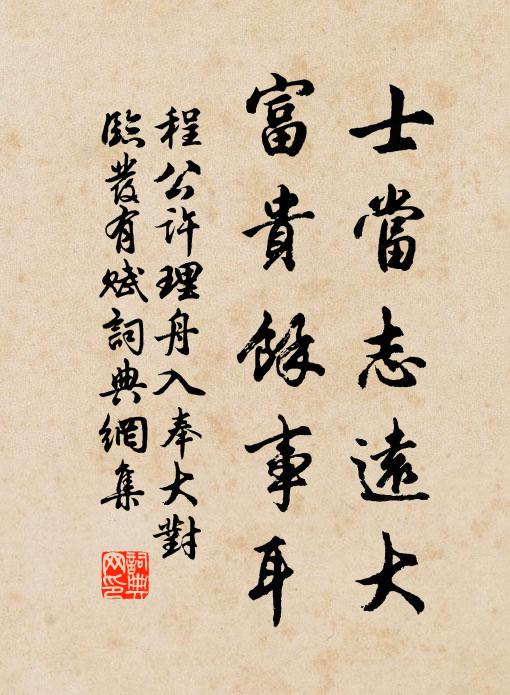 士當志遠大
富貴餘事耳
程公許理舟入奉大對
臨發有賦詞典網集
詞典网印